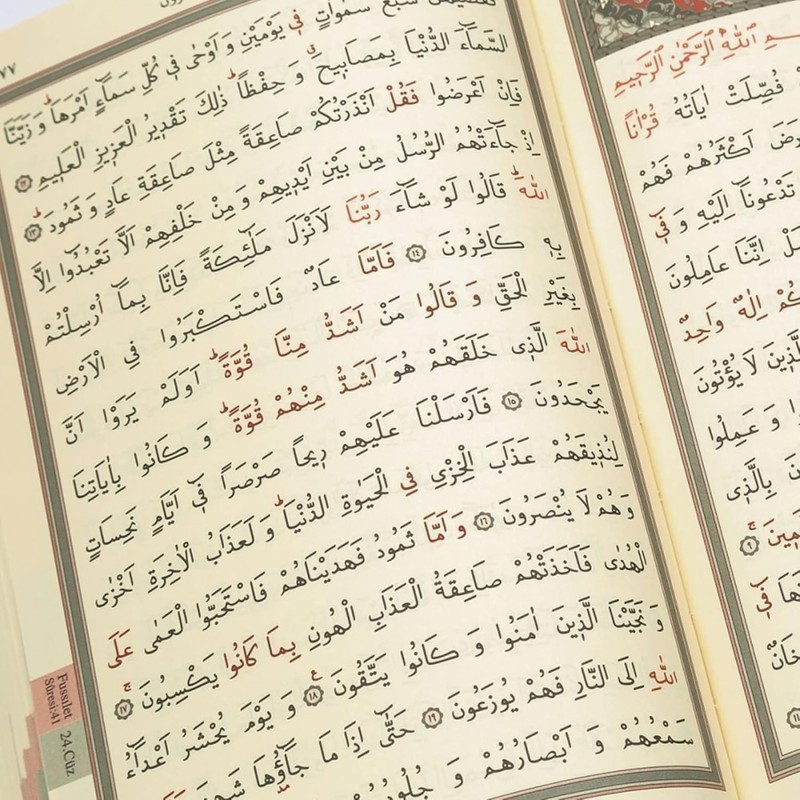 ـسم الله الرحمن الرحيم
فُصِّلَتْ اٰيَاتُهُ قُرْاٰنًا
اَكْثَرُهُمْ فَهُمْ
تَدْعُونَا اِلَيْهِ وَ فٖى
اِنَّنَا عَامِلُونَ
اِلٰهٌ وَاحِدٌ
لَا يُؤْتُونَ
وَ عَمِلُوا
بِالَّذٖى
٩
فٖى
٧٧
سَبْعَ سَمٰوَاتٍ فٖى يَوْمَيْنِ وَ اَوْحٰى فٖى كُلِّ سَمَاءٍ اَمْرَهَا وَ زَيَّنَّا
السَّمَاءَ الدُّنْيَا بِمَصَابٖيحَ وَ حِفْظًا ذٰلِكَ تَقْدٖيرُ الْعَزٖيزِ الْعَلٖيمِ ١٢
فَاِنْ اَعْرَضُوا فَقُلْ اَنْذَرْتُكُمْ صَاعِقَةً مِثْلَ صَاعِقَةِ عَادٍ وَ ثَمُودَ ١٣
اِذْ جَاءَتْهُمُ الرُّسُلُ مِنْ بَيْنِ اَيْدٖيهِمْ وَ مِنْ خَلْفِهِمْ اَلَّا تَعْبُدُوا اِلَّا
اللهَ قَالُوا لَوْ شَاءَ رَبُّنَا لَاَنْزَلَ مَلٰئِكَةً فَاِنَّا بِمَا اُرْسِلْتُمْ
بِهٖ كَافِرُونَ ١٤ فَاَمَّا عَادٌ فَاسْتَكْبَرُوا فِى الْاَرْضِ
بِغَيْرِ الْحَقِّ وَ قَالُوا مَنْ اَشَدُّ مِنَّا قُوَّةً اَوَلَمْ يَرَوْا اَنَّ
اللهَ الَّذٖى خَلَقَهُمْ هُوَ اَشَدُّ مِنْهُمْ قُوَّةً وَ كَانُوا بِاٰيَاتِنَا
يَجْحَدُونَ ١٥ فَاَرْسَلْنَا عَلَيْهِمْ رٖيحًا صَرْصَرًا فٖى اَيَّامٍ نَحِسَاتٍ
لِنُذٖيقَهُمْ عَذَابَ الْخِزْىِ فِى الْحَيٰوةِ الدُّنْيَا وَ لَعَذَابُ الْاٰخِرَةِ اَخْزٰى
وَهُمْ لَا يُنْصَرُونَ ١٦ وَ اَمَّا ثَمُودُ فَهَدَيْنَاهُمْ فَاسْتَحَبُّوا الْعَمٰى عَلَى
الْهُدٰى فَاَخَذَتْهُمْ صَاعِقَةُ الْعَذَابِ الْهُونِ بِمَا كَانُوا يَكْسِبُونَ ١٧
وَ نَجَّيْنَا الَّذٖينَ اٰمَنُوا وَ كَانُوا يَتَّقُونَ ١٨ وَ يَوْمَ يُحْشَرُ اَعْدَاءُ
اللهِ اِلَى النَّارِ فَهُمْ يُوزَعُونَ ١٩ حَتّٰى اِذَا مَا جَاؤُهَا شَهِدَ
سَمْعُهُمْ وَ اَبْصَارُهُمْ وَ جُلُودُهُمْ
Fussılet
Sûresi:41
24.Cüz